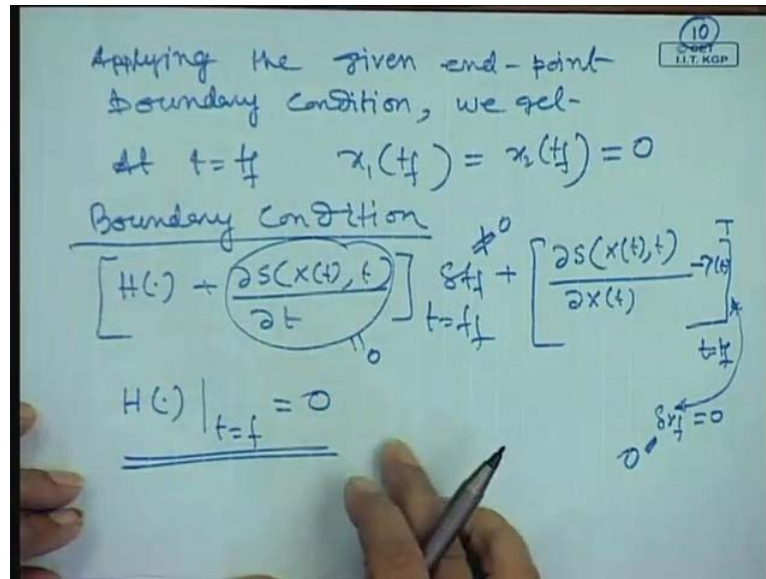 10
© CET
I.I.T. KGP
Applying the given end-point
Boundary Condition, we get-
At t = tf x₁(tf) = x₂(tf) = 0
Boundary Condition
[H(·) + ∂S(x(t), t)/∂t] t=tf δtf ≠ 0 + [∂S(x(t), t)/∂x(t) - λ(t)]ᵀ t=tf
= 0
δxf = 0
0
H(·)|t=f = 0